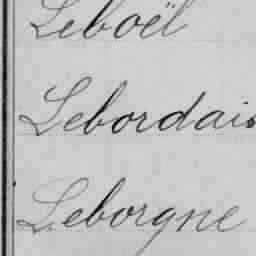 Leboël
Lebordais
Leborgne